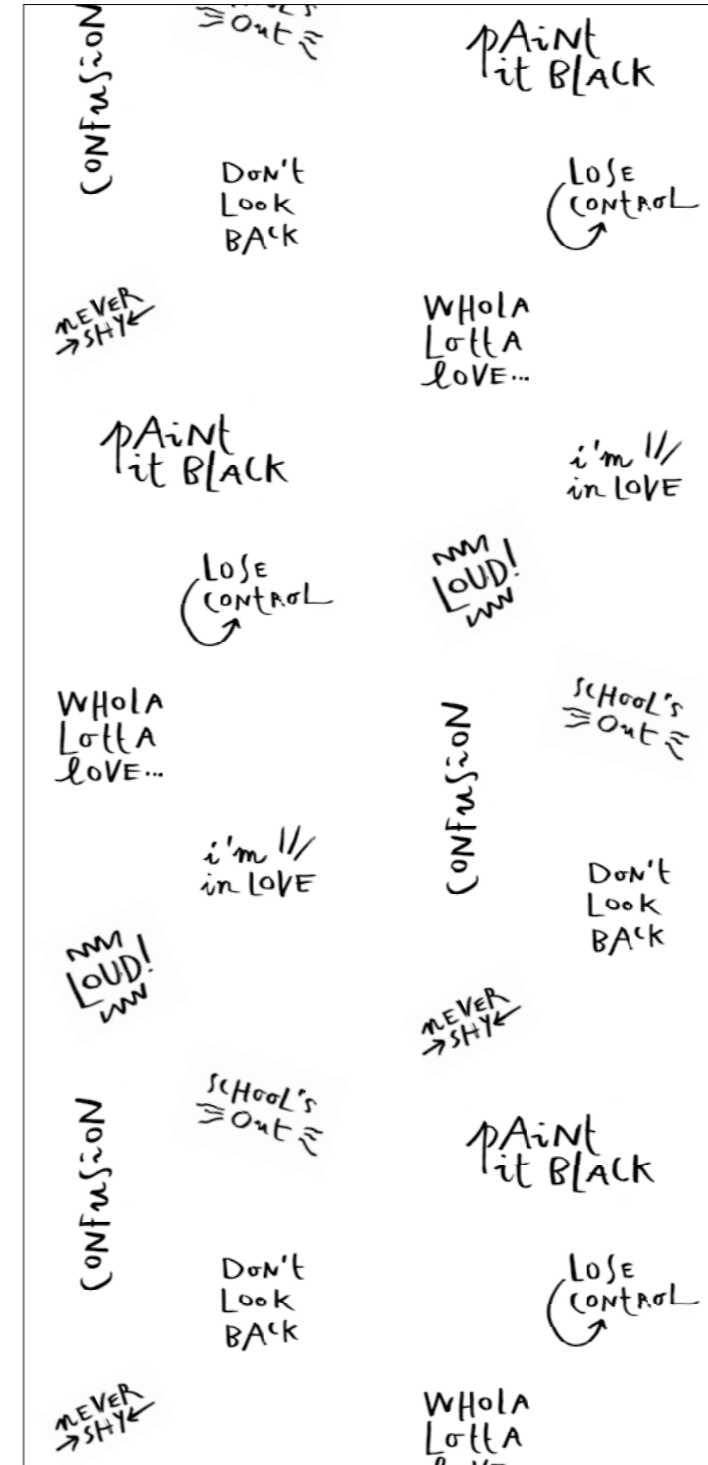 CONFUSION
SCHOOL'S
OUt
PAiNt
it BLACK
DON't
Look
BACK
LOSE
CONtROL
nEVER
SHY
WHOLA
LottA
lOVE...
PAiNt
it BLACK
i'm
in LOVE
LOSE
CONtROL
LOUD!
WHOLA
LottA
lOVE...
CONFUSiON
SCHOOL'S
OUt
i'm
in LOVE
DON't
Look
BACK
LOUD!
nEVER
SHY
CONFUSiON
SCHOOL'S
OUt
PAiNt
it BLACK
DON't
Look
BACK
LOSE
CONtROL
nEVER
SHY
WHOLA
LottA